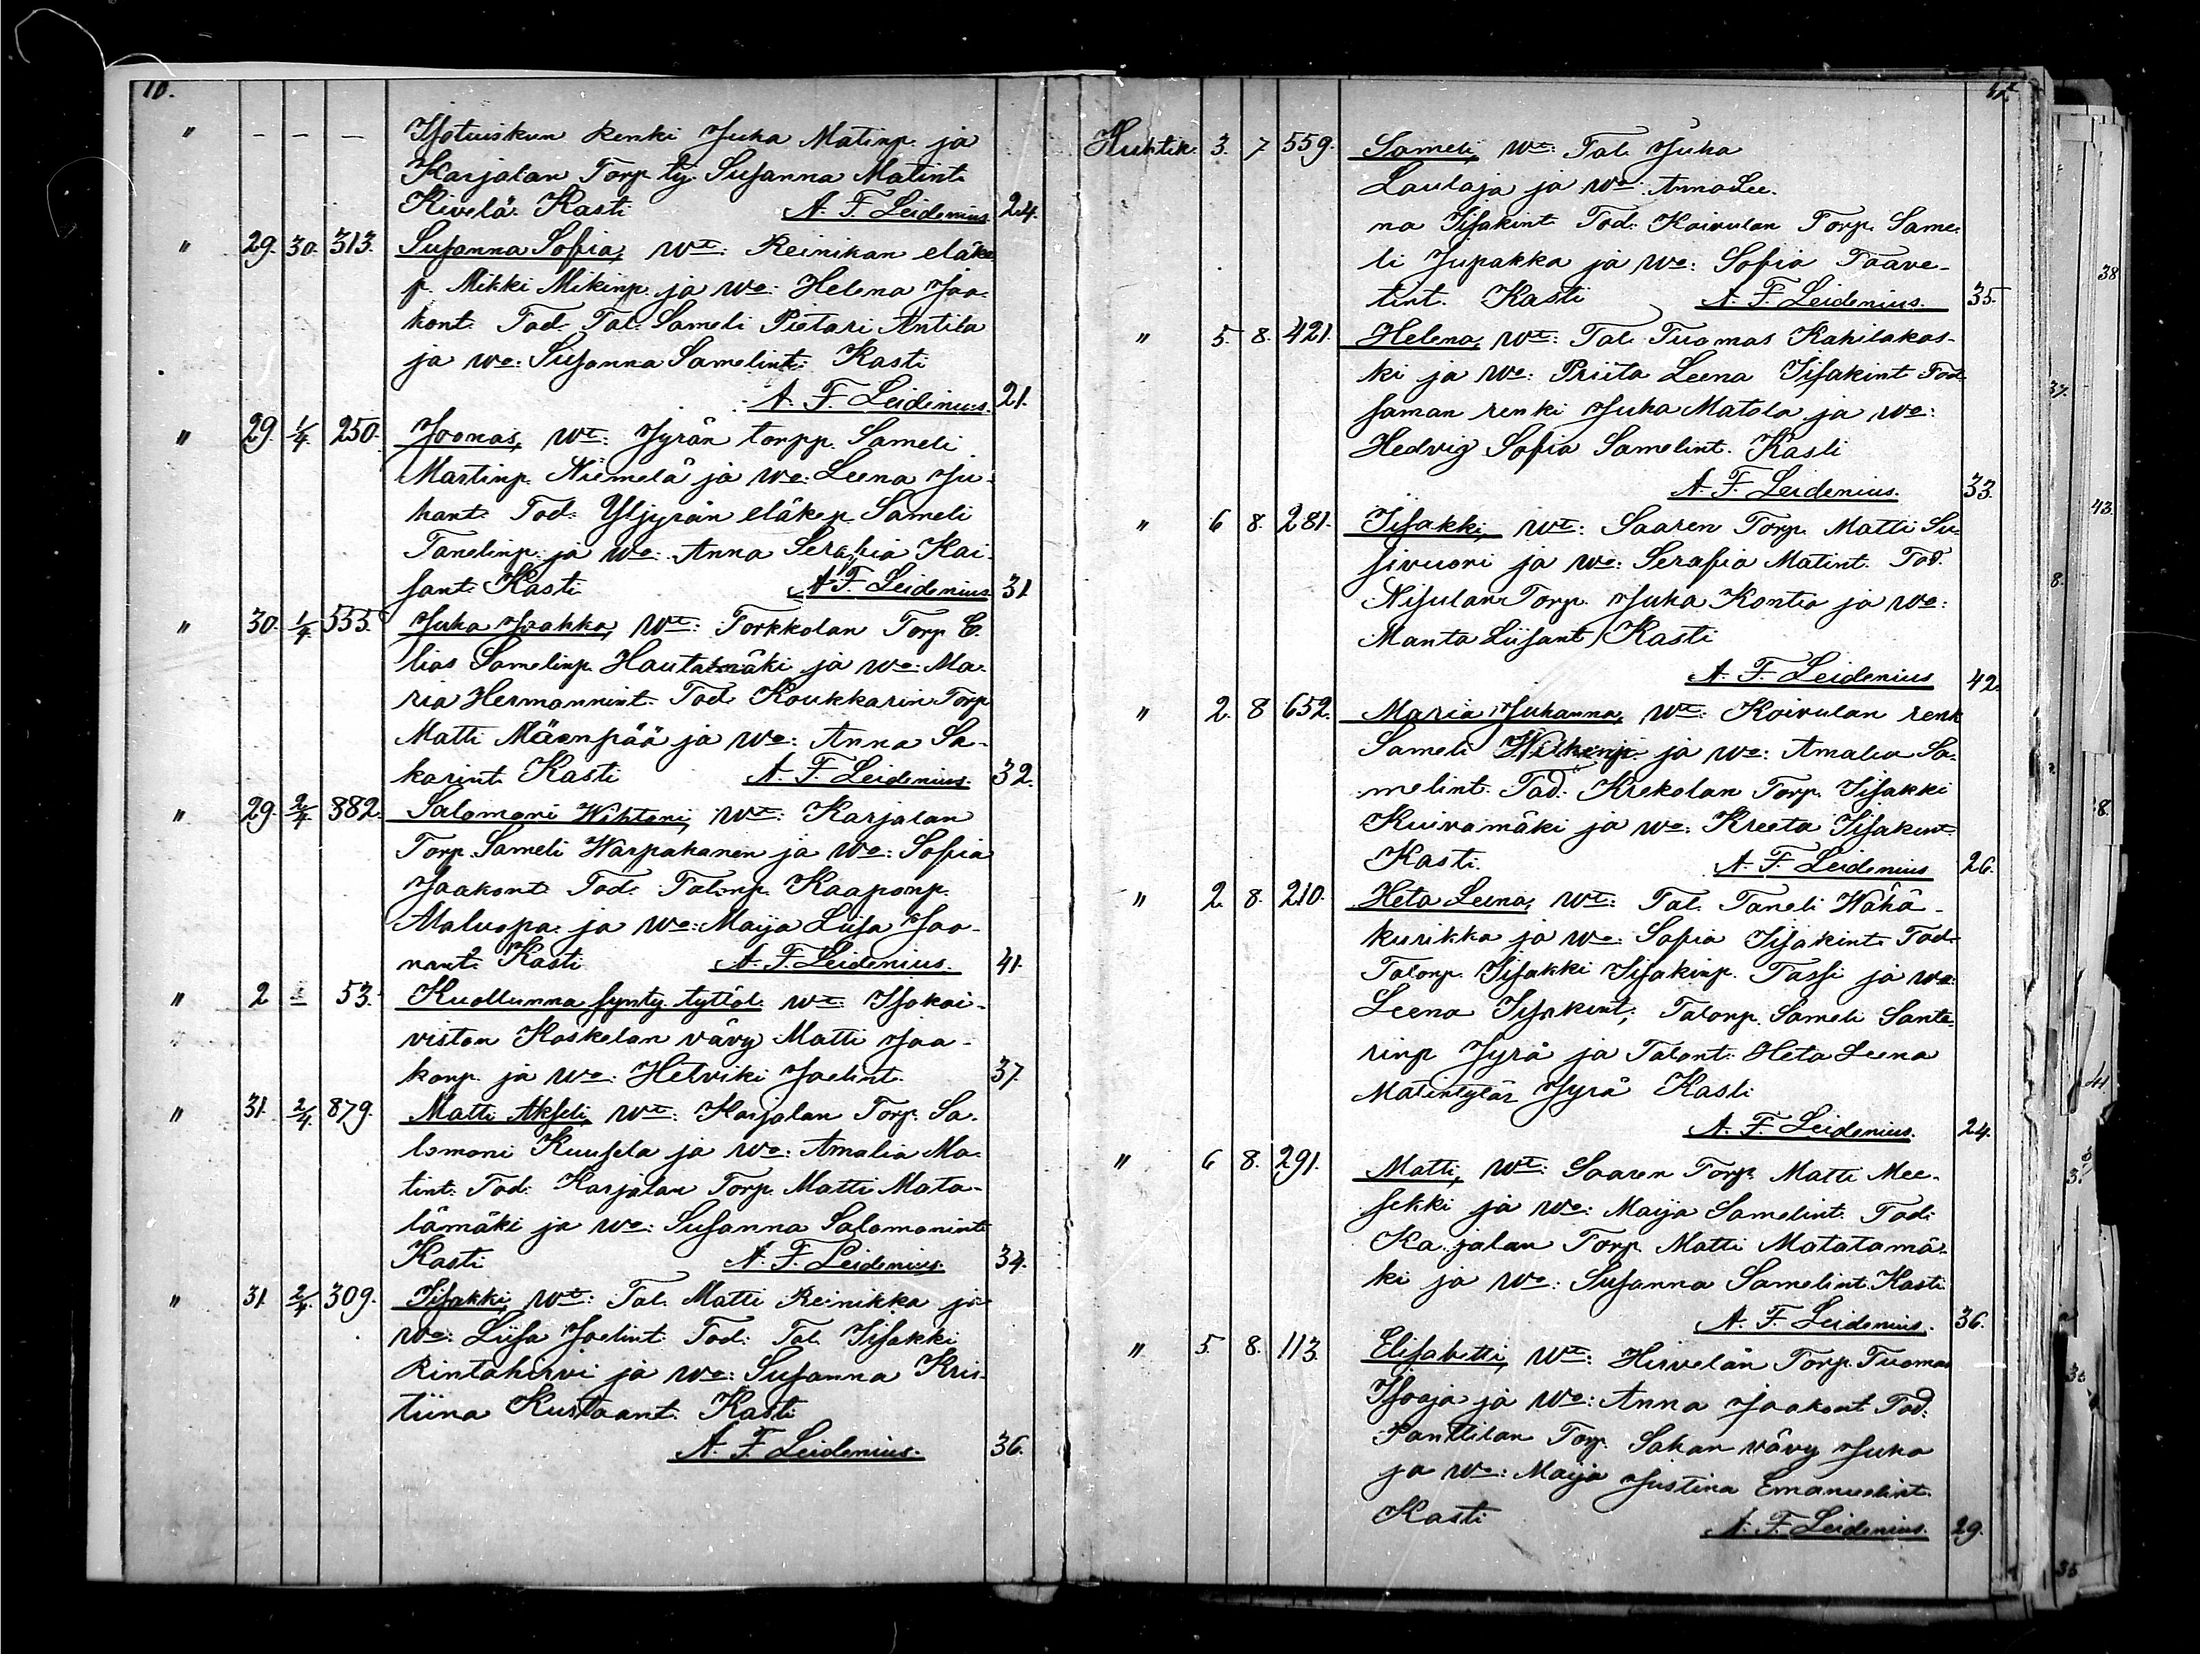 10.
" — — — Isotuiskun Renki Juha Matinp. ja
Karjalan Torp. ty. Susanna Matint.
Kivelä. Kasti A. F. Leidenius. 24.
" 29. 30. 313. Susanna Sofia, wt: Reinikan eläke
p. Mikki Mikinp. ja wo: Helena Jaa-
kont. Tod. Tal. Sameli Pietari Antila
ja wo: Susanna Samelint. Kasti
A. F. Leidenius. 21.
" 29. 1/4. 250. Joonas, wt: Jyrän torpp. Sameli
Martinp. Niemelä ja wo: Leena Ju-
hant. Tod: Yljyrän eläkep. Sameli
Tanelinp. ja wo: Anna Serafia Kai-
sant. Kasti A. F. Leidenius 31.
" 30. 1/4. 555. Juha Jaakko, wt: Torkkolan Torp. E-
lias Samelinp. Hautamäki ja wo: Ma-
ria Hermannint. Tod. Koukkarin Torp.
Matti Mäenpää ja wo: Anna Sa-
karint. Kasti A. F. Leidenius. 32.
" 29. 2/4. 882. Salomoni Wihtori, wt: Karjalan
Torp. Sameli Warpakanen ja wo: Sofia
Jaakont. Tod. Talonp. Kaaponp.
Maluspa ja wo: Maija Liisa Joo-
nant. Kasti A. F. Leidenius. 41.
" 2 — 53. Kuollunna synty. tyttöl. wt: Isokoi-
viston Koskelan vävy Matti Jaa-
konp. ja wo: Helviki Joelint. 37.
" 31. 2/4. 879. Matti Akseli, wt: Karjalan Torp. Sa-
lomoni Kuusela ja wo: Amalia Ma-
tint. Tod. Karjalan Torp. Matti Mata-
lämäki ja wo: Susanna Salomonint.
Kasti A. F. Leidenius. 34.
" 31. 2/4. 309. Iisakki, wt: Tal. Matti Reinikka ja
wo: Liisa Joelint. Tod: Tal. Iisakki
Rintahirvi ja wo: Susanna Kris-
tiina Kustaant. Kasti
A. F. Leidenius. 36.
Huhtik. 3. 7 559. Sameli, wt: Tal. Juha
Laulaja ja wo: Anna Lee-
na Iisakint. Tod. Koivulan Torp. Same-
li Jupakka ja wo: Sofia Taave-
tint. Kasti A. F. Leidenius. 35.
" 5. 8. 421. Helena, wt: Tal. Tuomas Kahilakos-
ki ja wo: Priita Leena Iisakint. Tod.
saman renki Juha Matola ja wo:
Hedvig Sofia Samelint. Kasti
A. F. Leidenius. 33.
" 6 8. 281. Iisakki, wt: Saaren Torp. Matti Su-
sivuori ja wo: Serafia Matint. Tod.
Nisulan Torp. Juha Kontio ja wo:
Manta Liisant. Kasti
A. F. Leidenius 42.
" 2. 8 652. Maria Juhanna, wt: Koivulan renk
Sameli ja wo: Amalia Sa-
melint. Tod: Krekolan Torp. Iisakki
Kuivamäki ja wo: Kreeta Iisakint.
Kasti. A. F. Leidenius 26.
" 2. 8. 210. Heta Leena, wt: Tal. Taneli Wähä-
kurikka ja wo: Sofia Iisakint. Tod.
Talonp. Iisakki Iisakinp. Tassi ja wo:
Leena Iisakint; Talonp. Sameli Sante-
rinp Jyrä ja Talont. Heta Leena
Matintytär Jyrä Kasti
A. F. Leidenius. 24.
" 6 8. 291. Matti, wt: Saaren Torp. Matti Mee-
sekki ja wo: Maija Samelint. Tod:
Ka jalan Torp. Matti Matalamä-
ki ja wo: Susanna Samelint. Kasti
A. F. Leidenius. 36.
" 5 8. 113. Elisabetti, wt: Hirvelän Torp. Tuomas
Isoaja ja wo: Anna Jaakont Tod:
Panttilan Torp. Sahan vävy Juho
ja wo: Maija Justina Emanuelint.
Kasti A. F. Leidenius. 29.